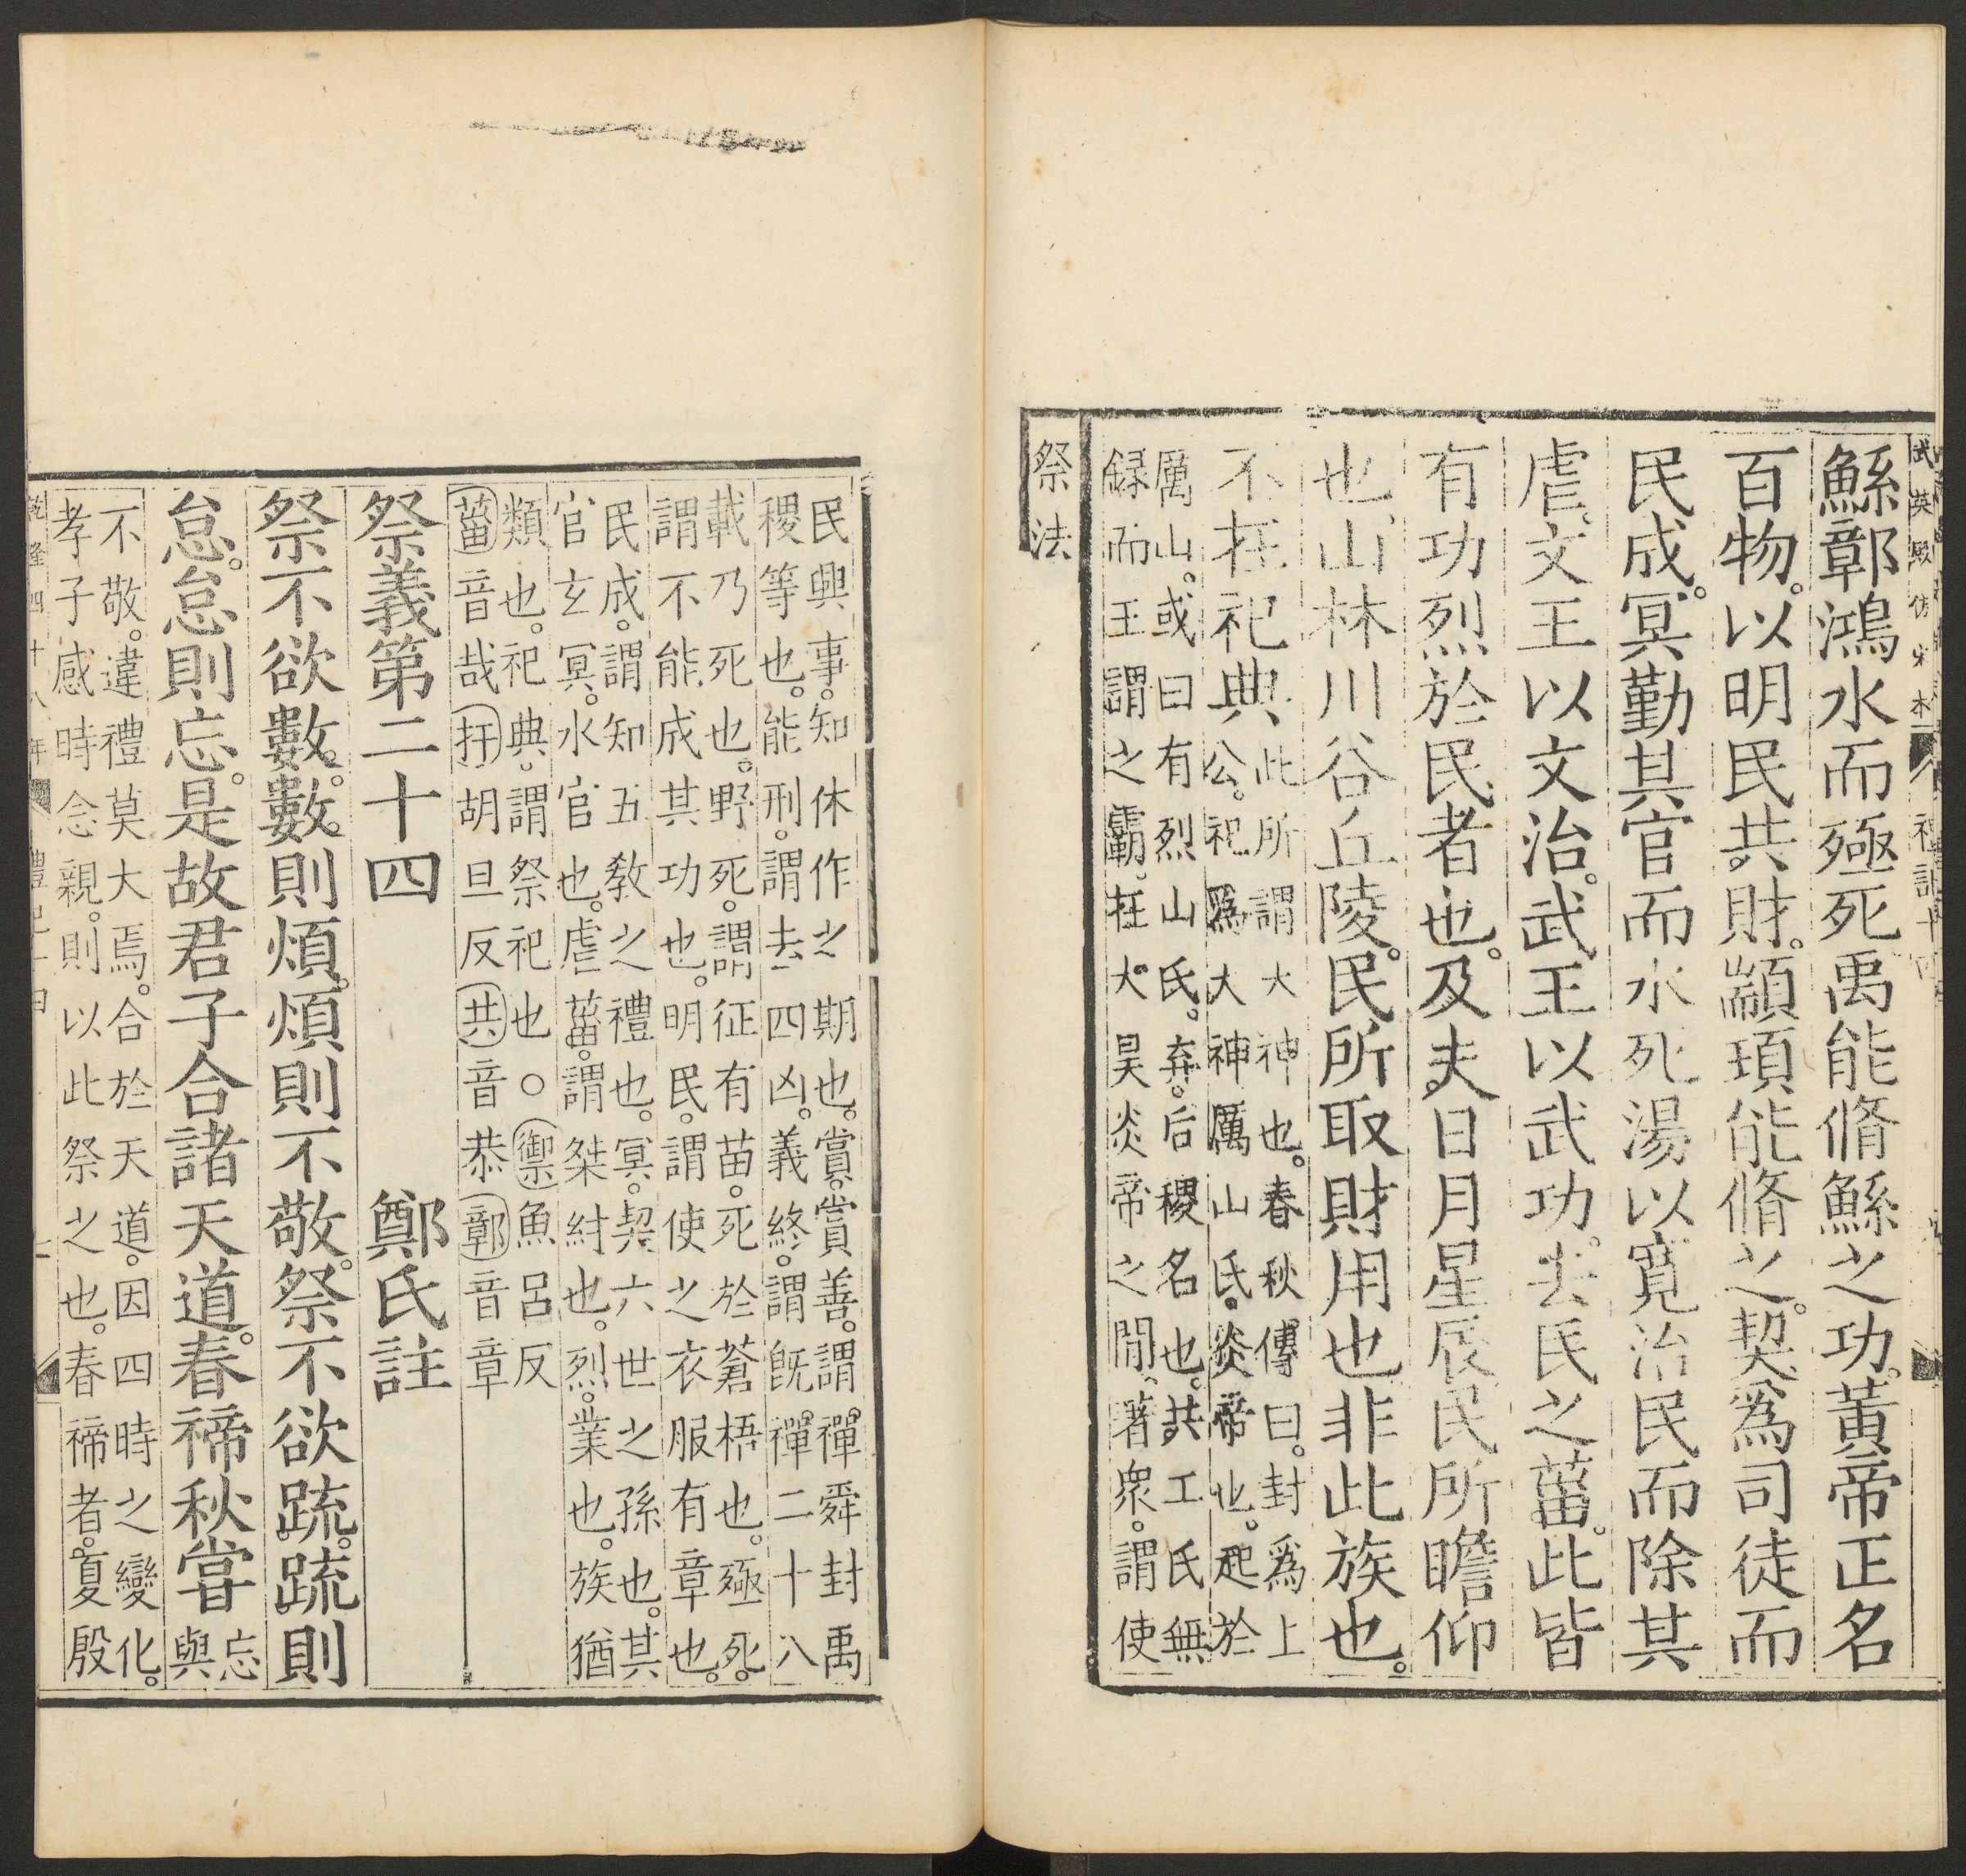 武英殿仿宋本
鯀鄣鴻水而殛死禹能脩鯀之功。黃帝正名
百物。以明民共財。顓頊能脩之。契爲司徒而
民成。冥勤其官而水死湯以寛治民而除其
虐。文王以文治。武王以武功。去民之菑。此皆
有功烈於民者也。及夫日月星辰民所瞻仰
也山林川谷丘陵。民所取財用也非此族也。
不在祀典此所謂大神也。春秋傳曰。封爲上
公。祀爲大神厲山氏。炎帝也。起於
厲山。或曰有烈山氏。弃。后稷名也。共工氏無
録而王謂之霸。在大昊炎帝之間。著衆。謂使
祭法
民興事。知休作之期也。賞。賞善。謂禪舜封禹
稷等也。能刑。謂去四凶。義終。謂旣禪二十八
載乃死也。野死。謂征有苗。死於蒼梧也。殛死。
謂不能成其功也。明民。謂使之衣服有章也。
民成。謂知五敎之禮也。冥。契六世之孫也。其
官玄冥。水官也。虐菑。謂桀紂也。烈。業也。族猶
類也。祀典。謂祭祀也○禦魚呂反
菑音哉扞胡旦反共音恭鄣音章
祭義第二十四 鄭氏註
祭不欲數。數則煩。煩則不敬。祭不欲疏。疏則
怠。怠則忘。是故君子合諸天道。春禘秋嘗忘
與
不敬。違禮莫大焉。合於天道。因四時之變化。
孝子感時念親。則以此祭之也。春禘者。夏殷
乾隆四十八年 禮記十四